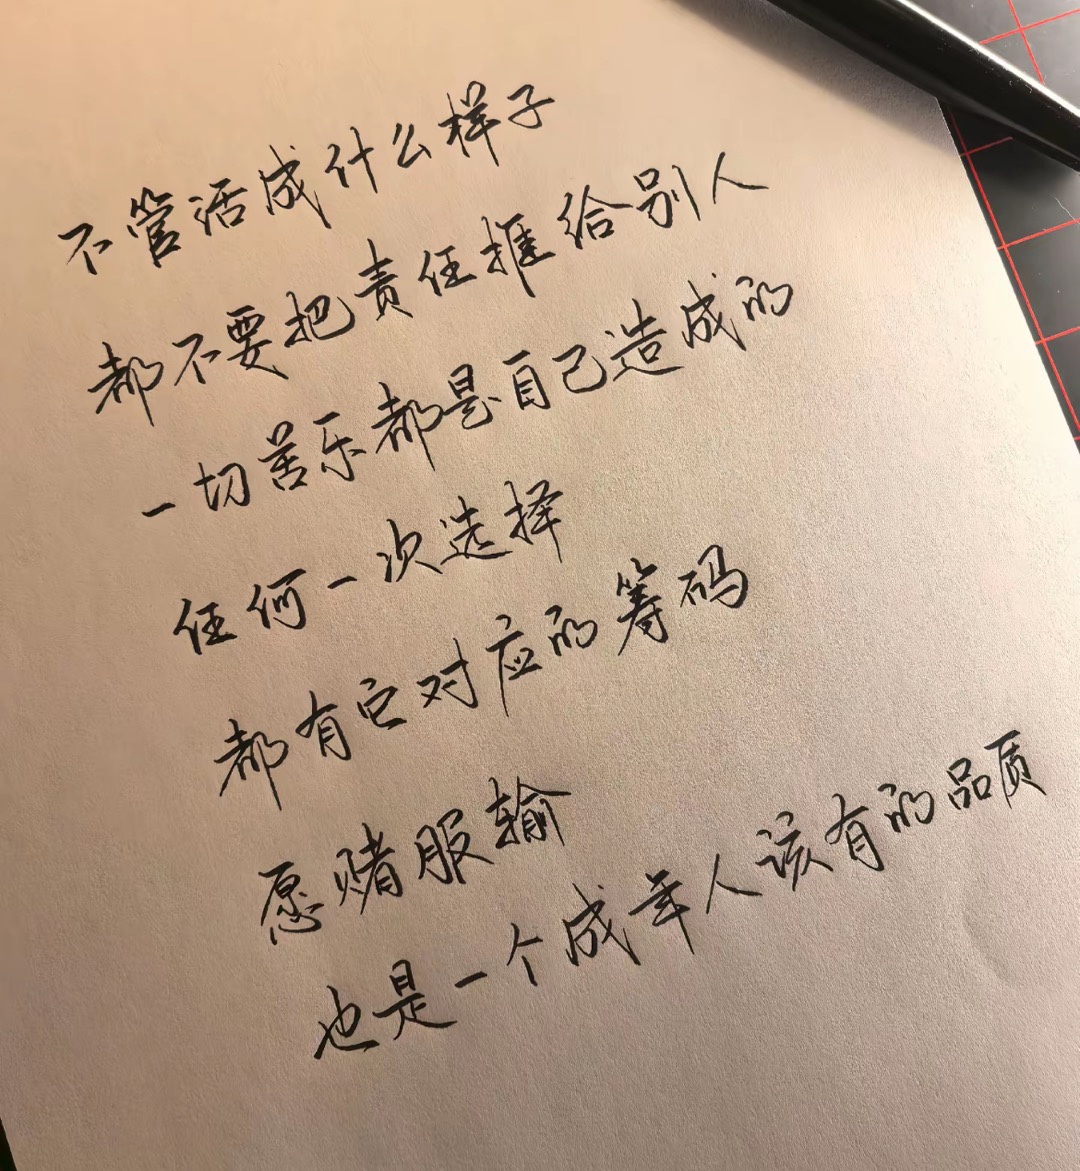 不管活成什么样子
都不要把责任推给别人
一切苦乐都是自己造成的
任何一次选择
都有它对应的筹码
愿赌服输
也是一个成年人该有的品质